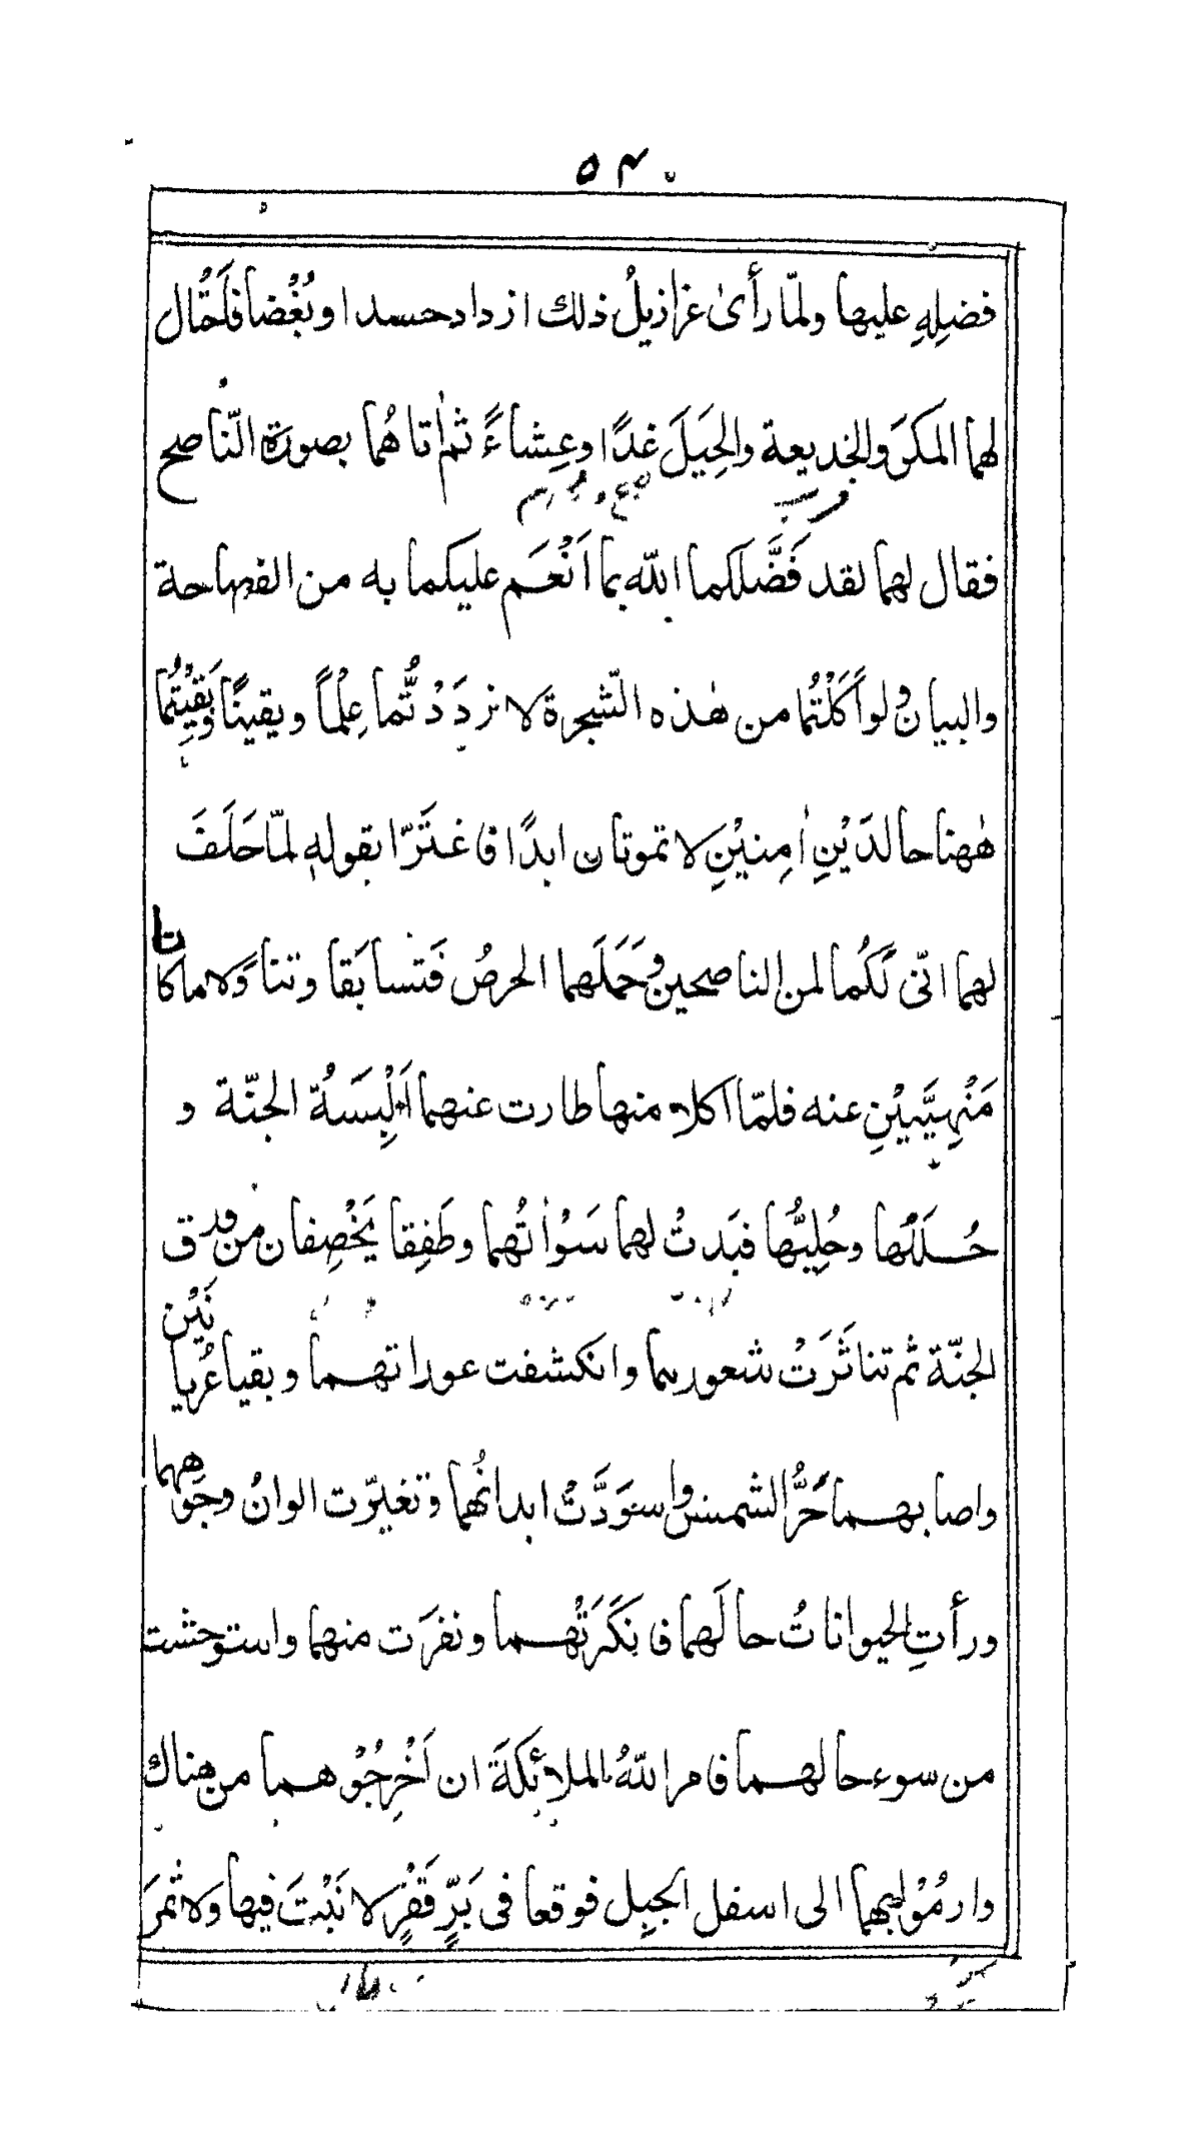 ٥٤٠
فضلِهِ عليها ولمّا رأىٰ عزازيلُ ذلك ازداد حسدا وبُغْضا فَاحْتال
لهما المكرَ والخديعة والحِيَلَ غدًا وعِشاءً ثم اتا هُما بصورة النّاصح
فقال لهما لقد فَضَّلكما الله بما اَنْعَم عليكما به من الفصاحة
والبيان ولو اَكَلْتُما من هٰذه الشّجرة لازدَدْتُّما عِلْماً ويقينًا وبَقِيْتُما
هٰهنا خالدَيْنِ اٰمِنيْنِ لا تموتان ابدًا فاغتَرّا بقولهٖ لمّا حَلَفَ
لهما انّى لَكُما لمن الناصحين وحَمَلَهما الحرصُ فَتسابَقا وتناوَلا ما كانا
مَنْهِيَّيْنِ عنه فلمّا اكلا منها طارت عنهما اَلْبِسَةُ الجنّة و
حُلَلُها وحُلِيُّها فبَدتْ لهما سَوْاٰتُهما وطَفِقا يَخْصِفان من ورق
الجنّة ثم تناثَرَتْ شعورهما وانكشفت عوراتهما وبقيا عُريانَيْن
واصابهما حَرُّ الشمس واسوَدَّتْ ابدانُهما وتغيّرت الوانُ وجوههما
ورأتِ الحيواناتُ حالَهما فانكَرَتْهما ونفرَت منهما واستوحشت
من سوء حالهما فامر اللهُ الملائكةَ ان اَخْرِجُوْهما من هناك
وارمُوْا بهما الى اسفل الجبل فوقعا فى بَرٍّ قَفْرٍ لا نَبْتَ فيها ولا ثمرَ